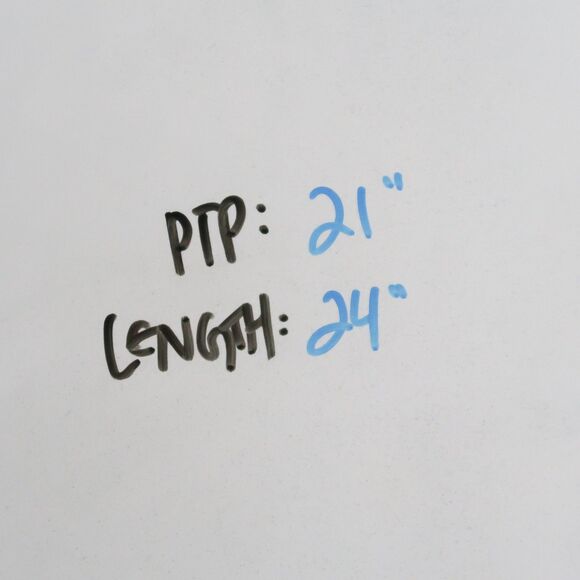 PTP: 21"
LENGTH: 24"